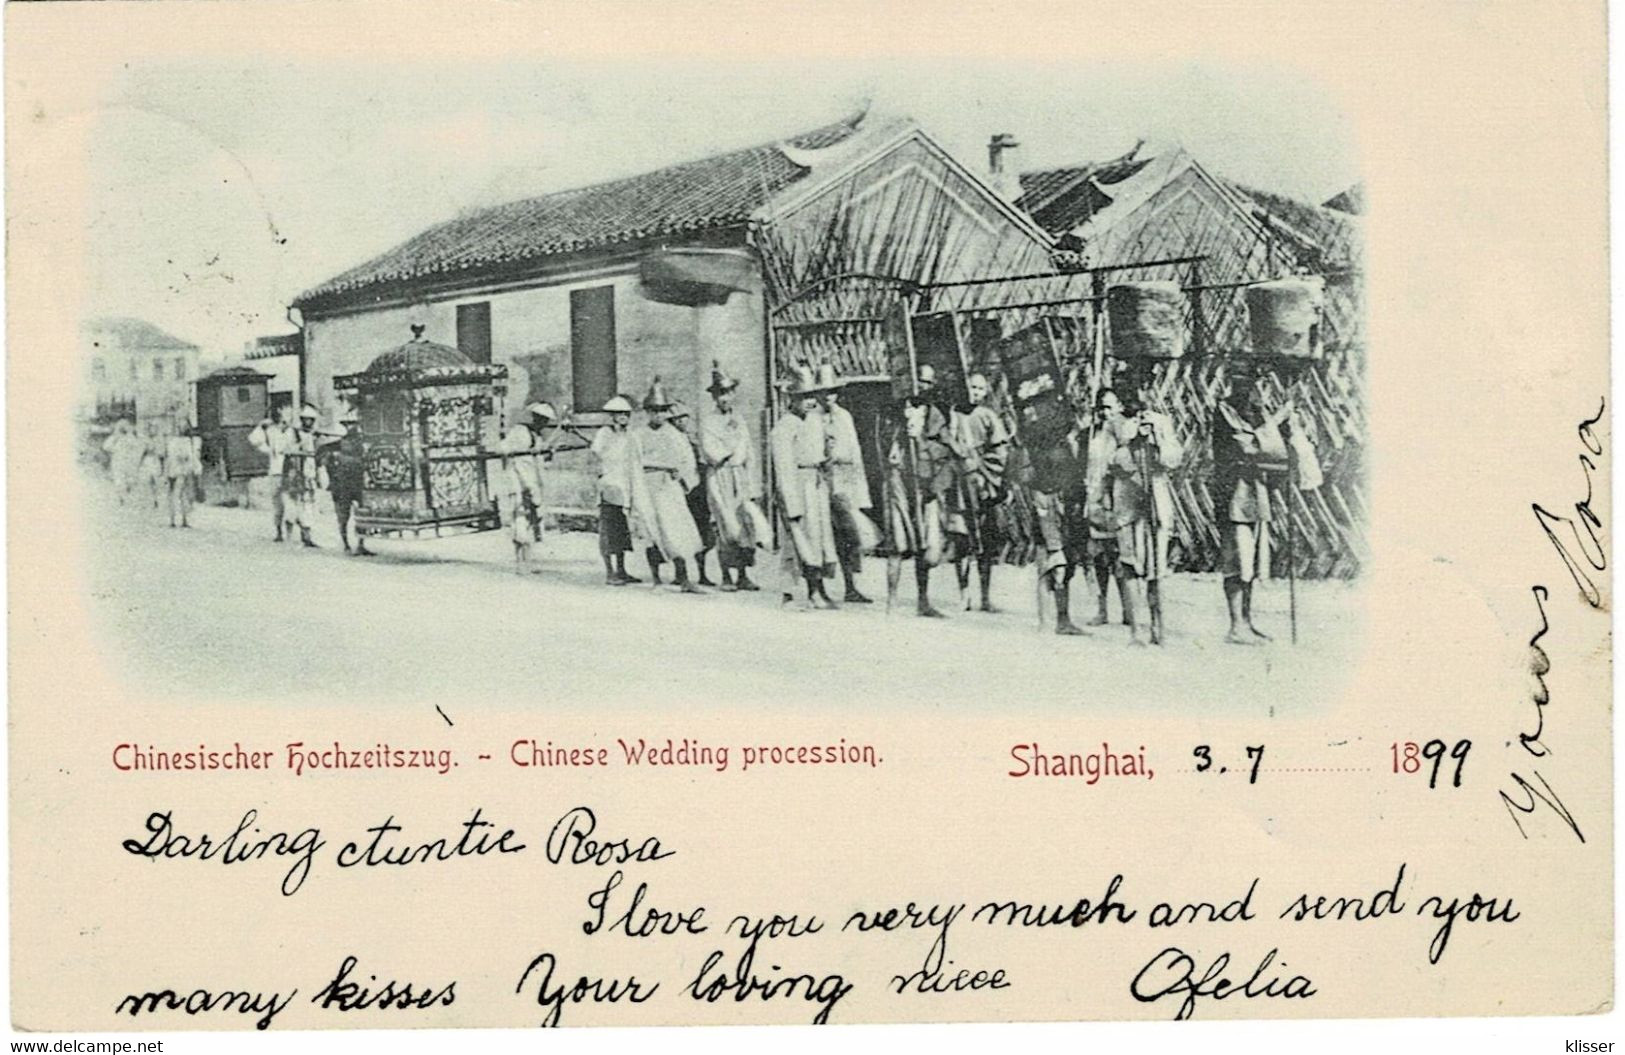 Chinesischer Hochzeitszug. - Chinese Wedding procession.
Shanghai, 3.7 1899
Darling Auntie Rosa
I love you very much and send you
many kisses Your loving niece Ofelia
Yours Rosa
www.delcampe.net
klisser